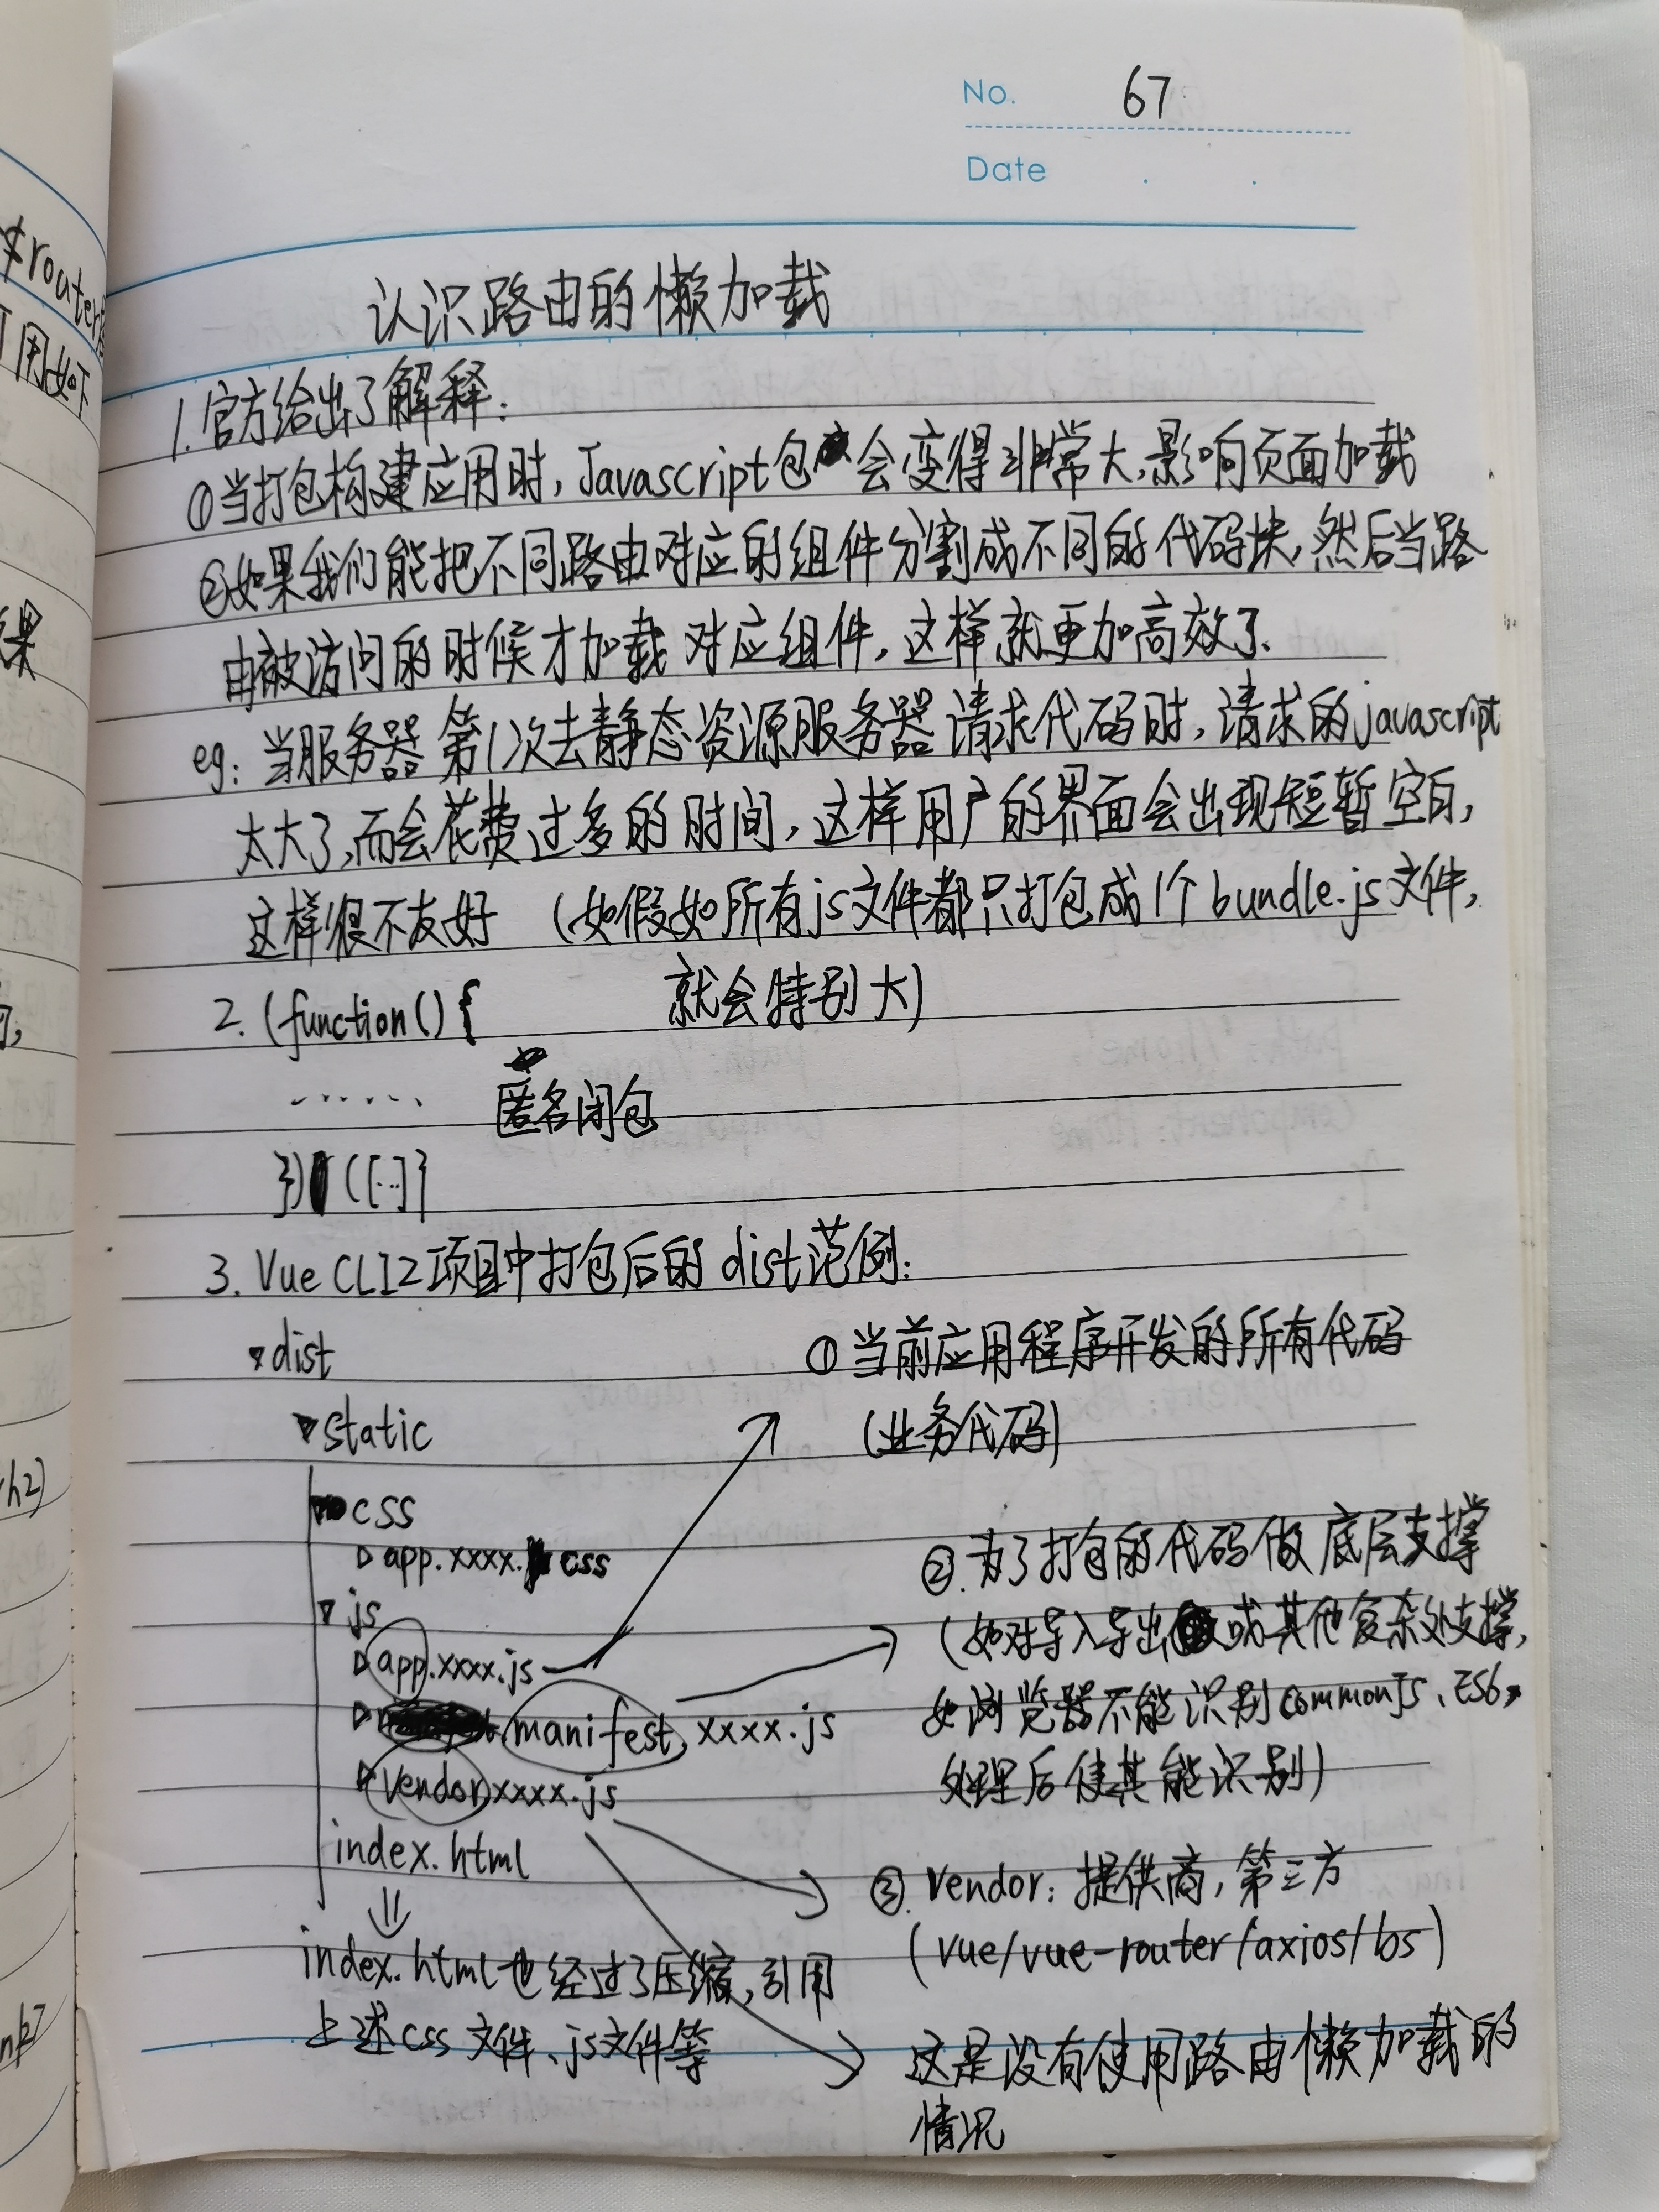 No. 67
Date
认识路由的懒加载
1.官方给出了解释:
①当打包构建应用时,Javascript包会变得非常大,影响页面加载
②如果我们能把不同路由对应的组件分割成不同的代码块,然后当路
由被访问的时候才加载对应组件,这样就更加高效了.
eg:当服务器第1次去静态资源服务器请求代码时,请求的javascript
太大了,而会花费过多的时间,这样用户的界面会出现短暂空白,
这样很不友好 (如假如所有js文件都只打包成1个bundle.js文件,
就会特别大)
2.(function(){
...... 匿名闭包
})([...]}
3.Vue CLI2项目中打包后的dist范例:
dist
static
css
app.xxxx.css
js
app.xxxx.js
manifest.xxxx.js
vendor.xxxx.js
index.html
index.html也经过了压缩,引用
上述css文件、js文件等
①当前应用程序开发的所有代码
(业务代码)
②.为了打包的代码做底层支撑
(如对导入导出或其他复杂处支撑,
如浏览器不能识别commonJS、ES6,
处理后使其能识别)
③.Vendor:提供商,第三方
(vue/vue-router/axios/bs)
这是没有使用路由懒加载的
情况
$router
可用如下
果